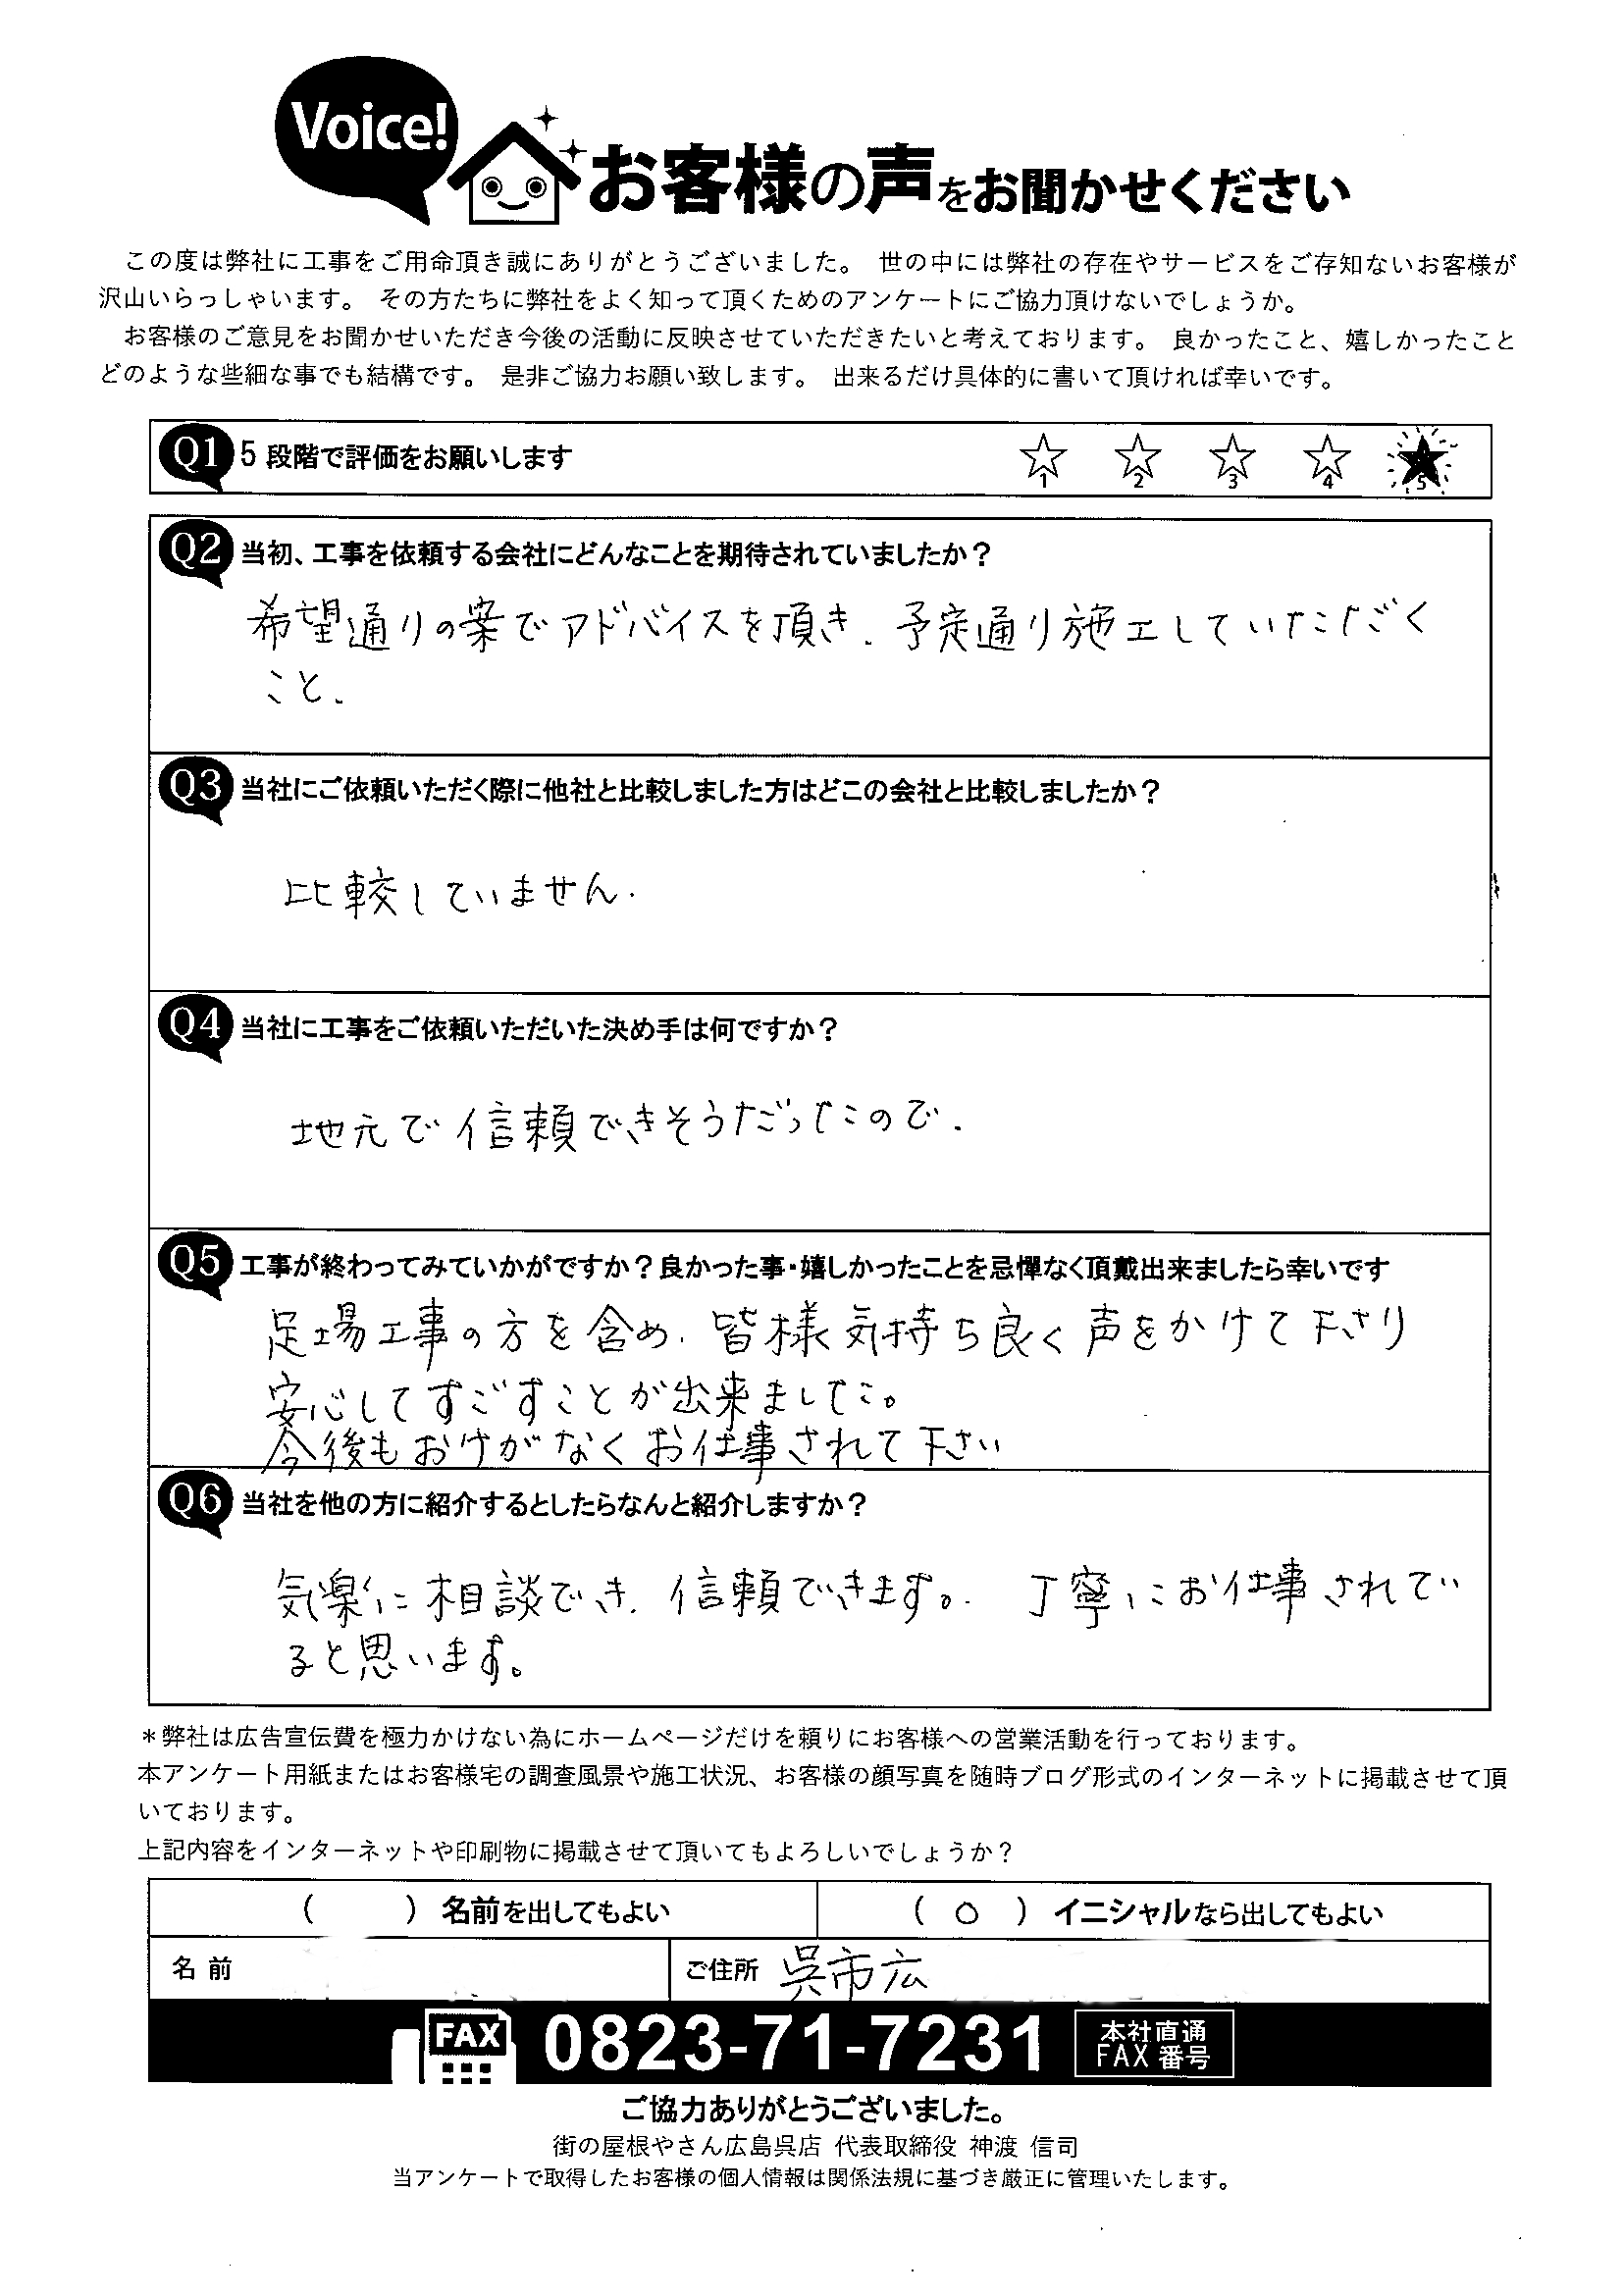 Voice!
お客様の声をお聞かせください
この度は弊社に工事をご用命頂き誠にありがとうございました。 世の中には弊社の存在やサービスをご存知ないお客様が
沢山いらっしゃいます。 その方たちに弊社をよく知って頂くためのアンケートにご協力頂けないでしょうか。
お客様のご意見をお聞かせいただき今後の活動に反映させていただきたいと考えております。 良かったこと、嬉しかったこと
どのような些細な事でも結構です。 是非ご協力お願い致します。 出来るだけ具体的に書いて頂ければ幸いです。
Q1 5 段階で評価をお願いします ☆1 ☆2 ☆3 ☆4 ★5
Q2 当初、工事を依頼する会社にどんなことを期待されていましたか？
希望通りの案でアドバイスを頂き、予定通り施工していただく
こと、
Q3 当社にご依頼いただく際に他社と比較しました方はどこの会社と比較しましたか？
比較していません.
Q4 当社に工事をご依頼いただいた決め手は何ですか？
地元で信頼できそうだったので.
Q5 工事が終わってみていかがですか？良かった事・嬉しかったことを忌憚なく頂戴出来ましたら幸いです
足場工事の方を含め、皆様気持ち良く声をかけて下さり
安心してすごすことが出来ました。
今後もおけがなくお仕事されて下さい
Q6 当社を他の方に紹介するとしたらなんと紹介しますか？
気楽に相談でき、信頼できます。 丁寧にお仕事されてい
ると思います。
＊弊社は広告宣伝費を極力かけない為にホームページだけを頼りにお客様への営業活動を行っております。
本アンケート用紙またはお客様宅の調査風景や施工状況、お客様の顔写真を随時ブログ形式のインターネットに掲載させて頂
いております。
上記内容をインターネットや印刷物に掲載させて頂いてもよろしいでしょうか？
（ ）名前を出してもよい （ ○ ）イニシャルなら出してもよい
名 前 ご住所 呉市広
FAX 0823-71-7231 本社直通
FAX 番号
ご協力ありがとうございました。
街の屋根やさん広島呉店 代表取締役 神渡 信司
当アンケートで取得したお客様の個人情報は関係法規に基づき厳正に管理いたします。